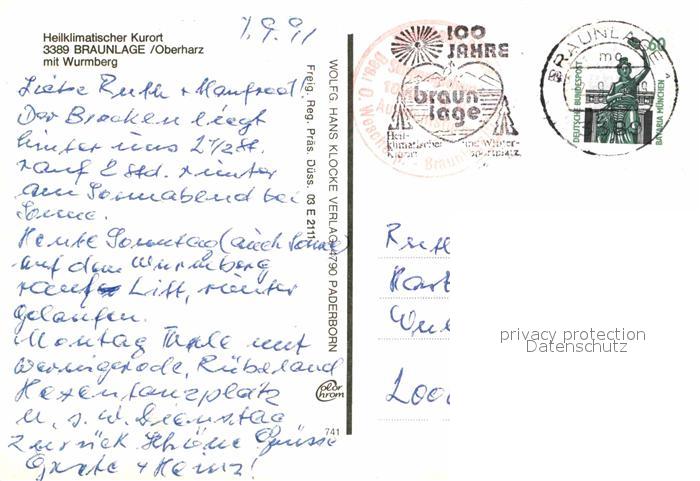 Heilklimatischer Kurort
3389 BRAUNLAGE /Oberharz
mit Wurmberg
1.9.91
Liebe Ruth + Manfred!
Der Brocken liegt
hinter uns 2 1/2 St.
rauf 2 Std. runter
am Sonnabend bei
Sonne.
Heute Sonntag (auch Sonne)
auf dem Wurmberg
rauf Lift, runter
gelaufen.
Montag Thale mit
Wernigerode, Rübeland
Hexentanzplatz
u.s.w. Dienstag
zurück Schöne Grüsse
Grete + Heinz!
WOLFG. HANS KLOCKE VERLAG, 4790 PADERBORN
Freig. Reg. Präs. Düss. 03 E 2111
color
chrom
741
100
JAHRE
braun
lage
Heil-
klimatischer und Winter-
Kurort sportplatz
BRAUNLAGE
60
DEUTSCHE BUNDESPOST
BAVARIA MÜNCHEN
privacy protection
Datenschutz